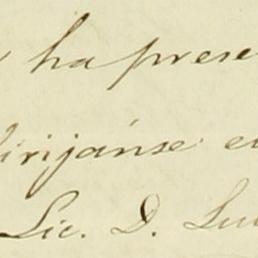 ha prese
dirijánse e
Lic. D. Lu